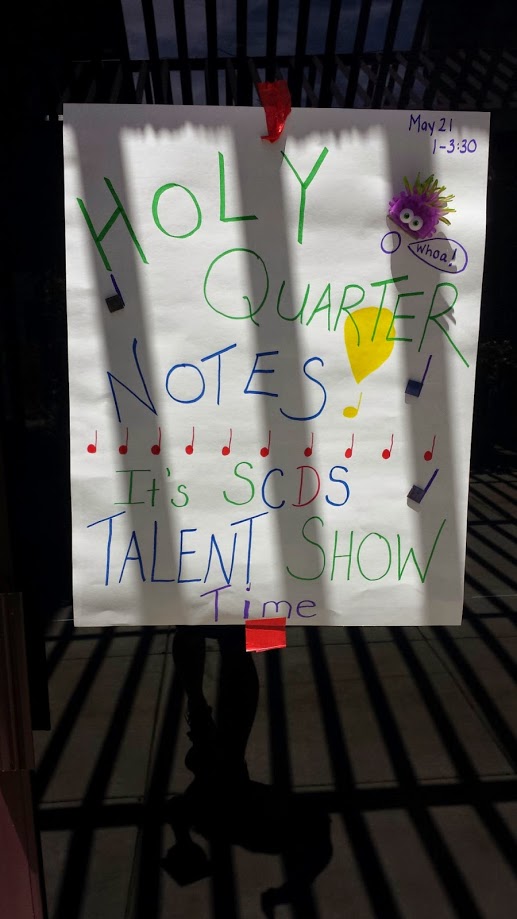 May 21
1-3:30
HOLY
Whoa!
QUARTER
NOTES!
It's SCDS
TALENT SHOW
Time